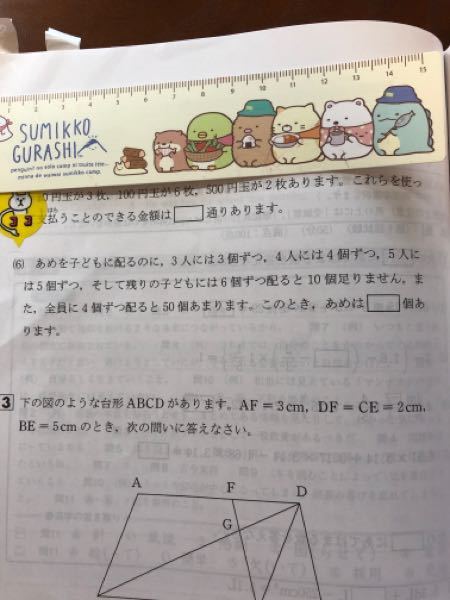 1 2 3 4 5 6 7 8 9 10 11 12 13 14 15
SUMIKKO
GURASHI
penguin? no solo camp ni tsuite itte...
minna de waiwai sumikko camp.
0円玉が3枚，100円玉が6枚，500円玉が2枚あります。これらを使っ
支払うことのできる金額は□通りあります。
(6) あめを子どもに配るのに，3人には3個ずつ，4人には4個ずつ，5人に
は5個ずつ，そして残りの子どもには6個ずつ配ると10個足りません。ま
た，全員に4個ずつ配ると50個あまります。このとき，あめは□個あ
ります。
3 下の図のような台形ABCDがあります。AF＝3cm，DF＝CE＝2cm，
BE＝5cmのとき，次の問いに答えなさい。
A F D
G